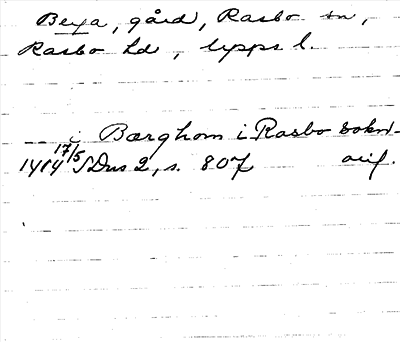 Berga, gård, Rasbo sn,
Rasbo hd, Upps l.
i Bærghom i Rasbo sokn
1414 17/5 SDns 2, s. 807 avif.